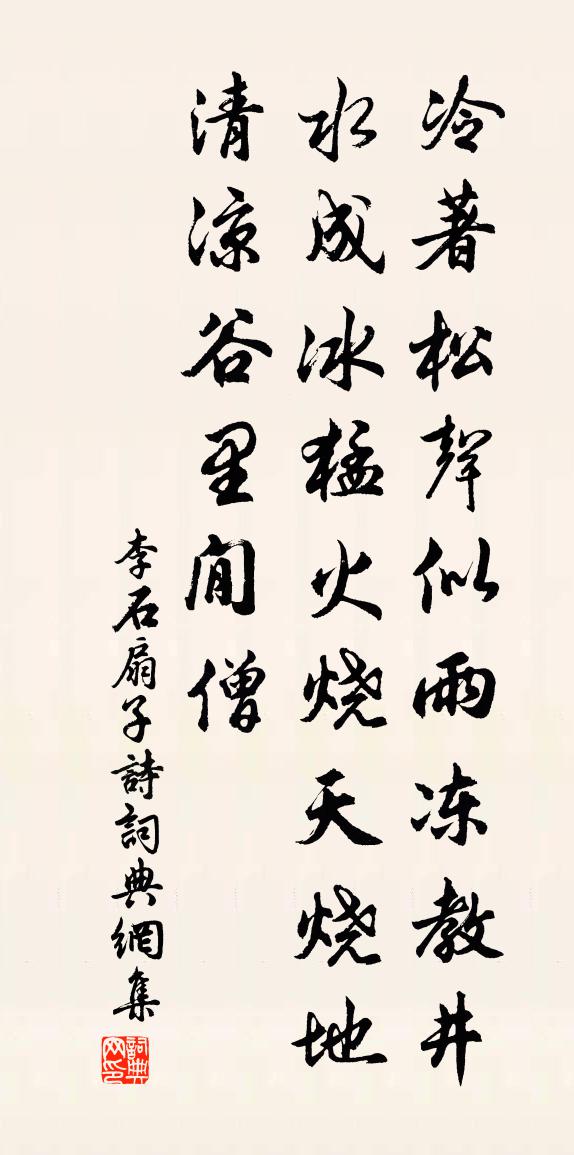 冷著松聲似雨冻教井
水成冰猛火烧天烧地
清凉谷里闲僧
李石扇子詩詞典網集
詞典网印